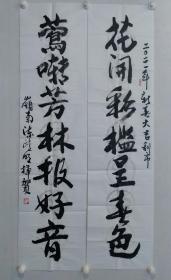 二〇二一年新春大吉利市
花开彩槛呈春色
莺啭芳林报好音
岭南
挥贺